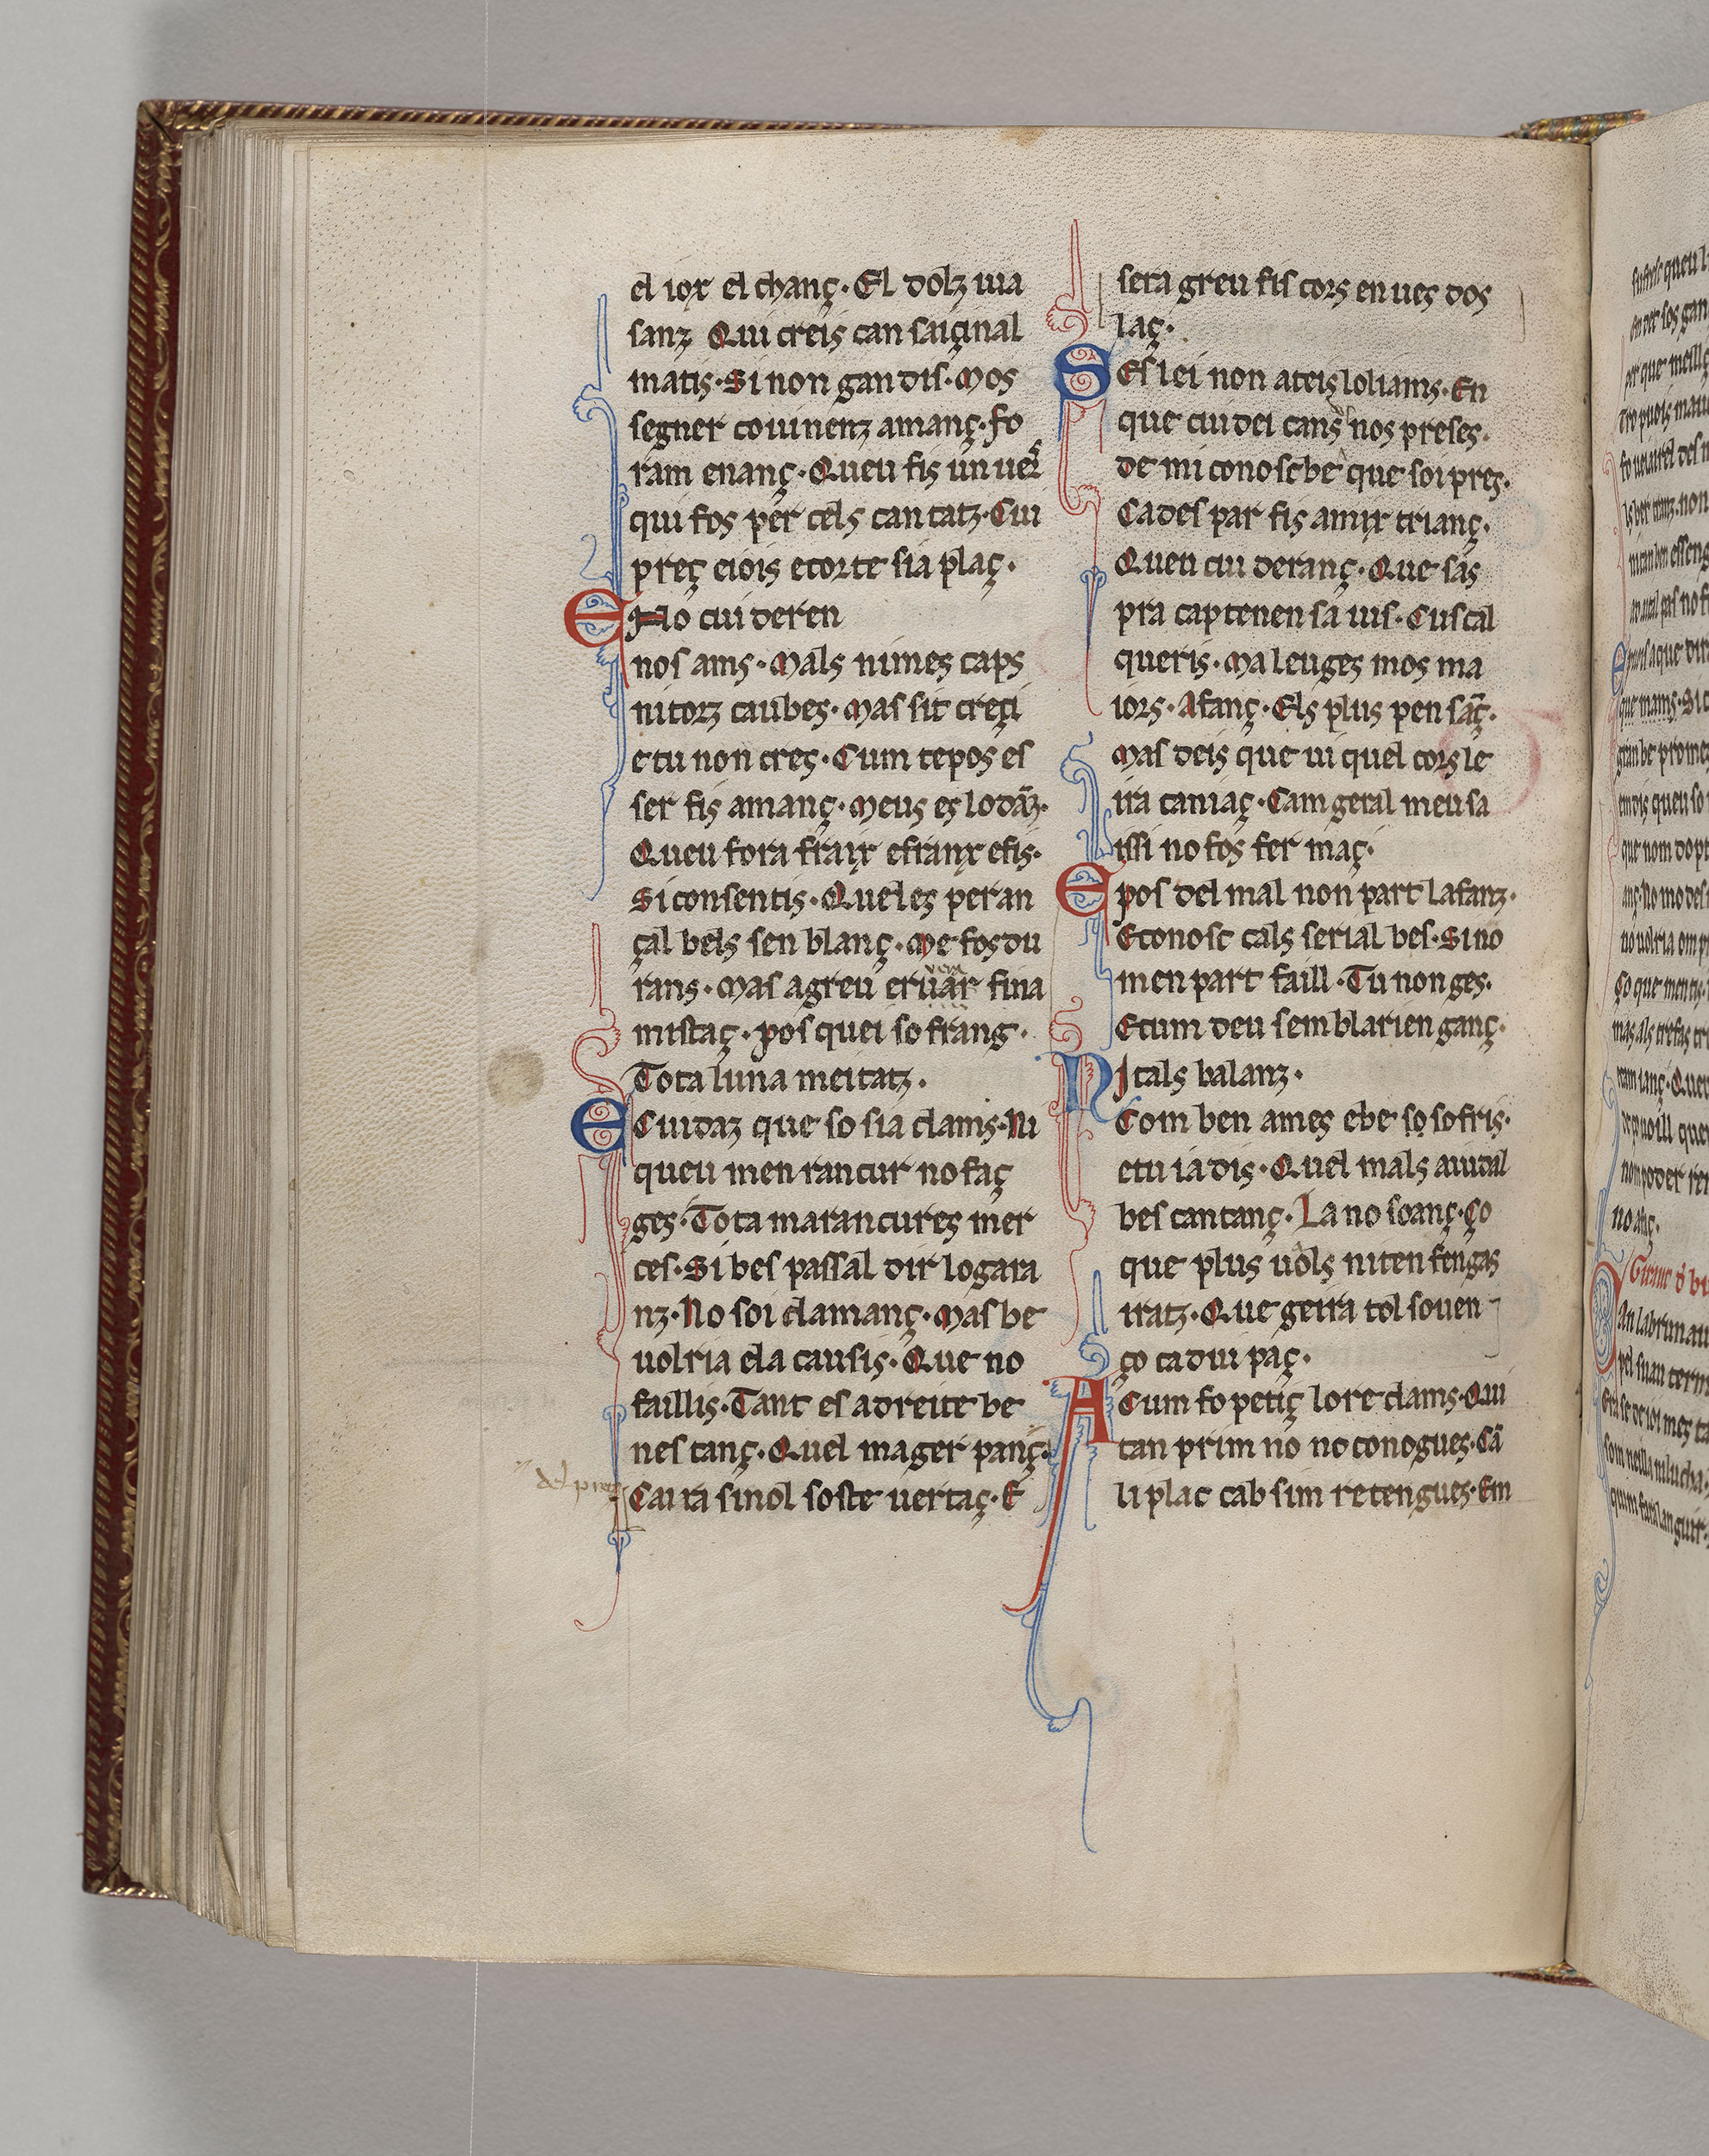 el iox el chanç. El dolz uia
sanz Qui creis can saiçinal
matis. Si non gandis. Mos
segner couinenz amanç. fo
ram enanç. Queu fis un uer
qui fos per cels cantatz. Cui
preç ciois ecorte sia plaç.
E No cuideren
nos ams. Mals nimes caps
nitorz caubes. Mas sit creçi
etu non cres. Cum tepos es
ser fis amanç. Meus es lo dāz.
Queu fora fraix efranx efis.
Si consentis. Queles peran
çal bels sen blanç. Me fos du
rans. Mas agreu eruar fina
mistaç. pos quei so frang.
Tota luna meitatz.
E Cuidaz que so sia clams. Ni
queu men rancur no faç
ges. Tota marancures mer
ces. Si bes passal dir logara
nz. No soi clamanç. Mas be
uolria ela causis. Que no
faillis. Tant es adreite be
nes tanç. Quel mager panç.
Caira sinol soste uertaç. E
sera greu fis cors en ues dos
laç.
S Es lei non ateis loliams. En
que cuidei cans nos preses.
de mi conosc be que soi pres.
Cades par fis amix trianç.
Quen cui deranç. Que sās
pra captenensa uis. Cuscal
queris. Maleuges mos ma
iors. Afanç. Els plus pen sāç.
Mas deis que ui quel cors le
ira camaç. Cam geral meusa
issi no fos fer maç.
E pos del mal non part lafanz.
Econosc cals serial bes. Sino
men part faill. Tu non ges.
Ecum deu semblarien ganç.
N I cals balanz.
Com ben ames ebe so sofris.
etu ia dis. Quel mals aiudal
bes cantanç. La no soanç. ço
que plus uols niten fengas
iratz. Que gerra tol souen
ço cadui paç.
A Cum fo petiç lore clams. Qui
tan prim no no conogues. Cā
li plac cab sim retengues. Em